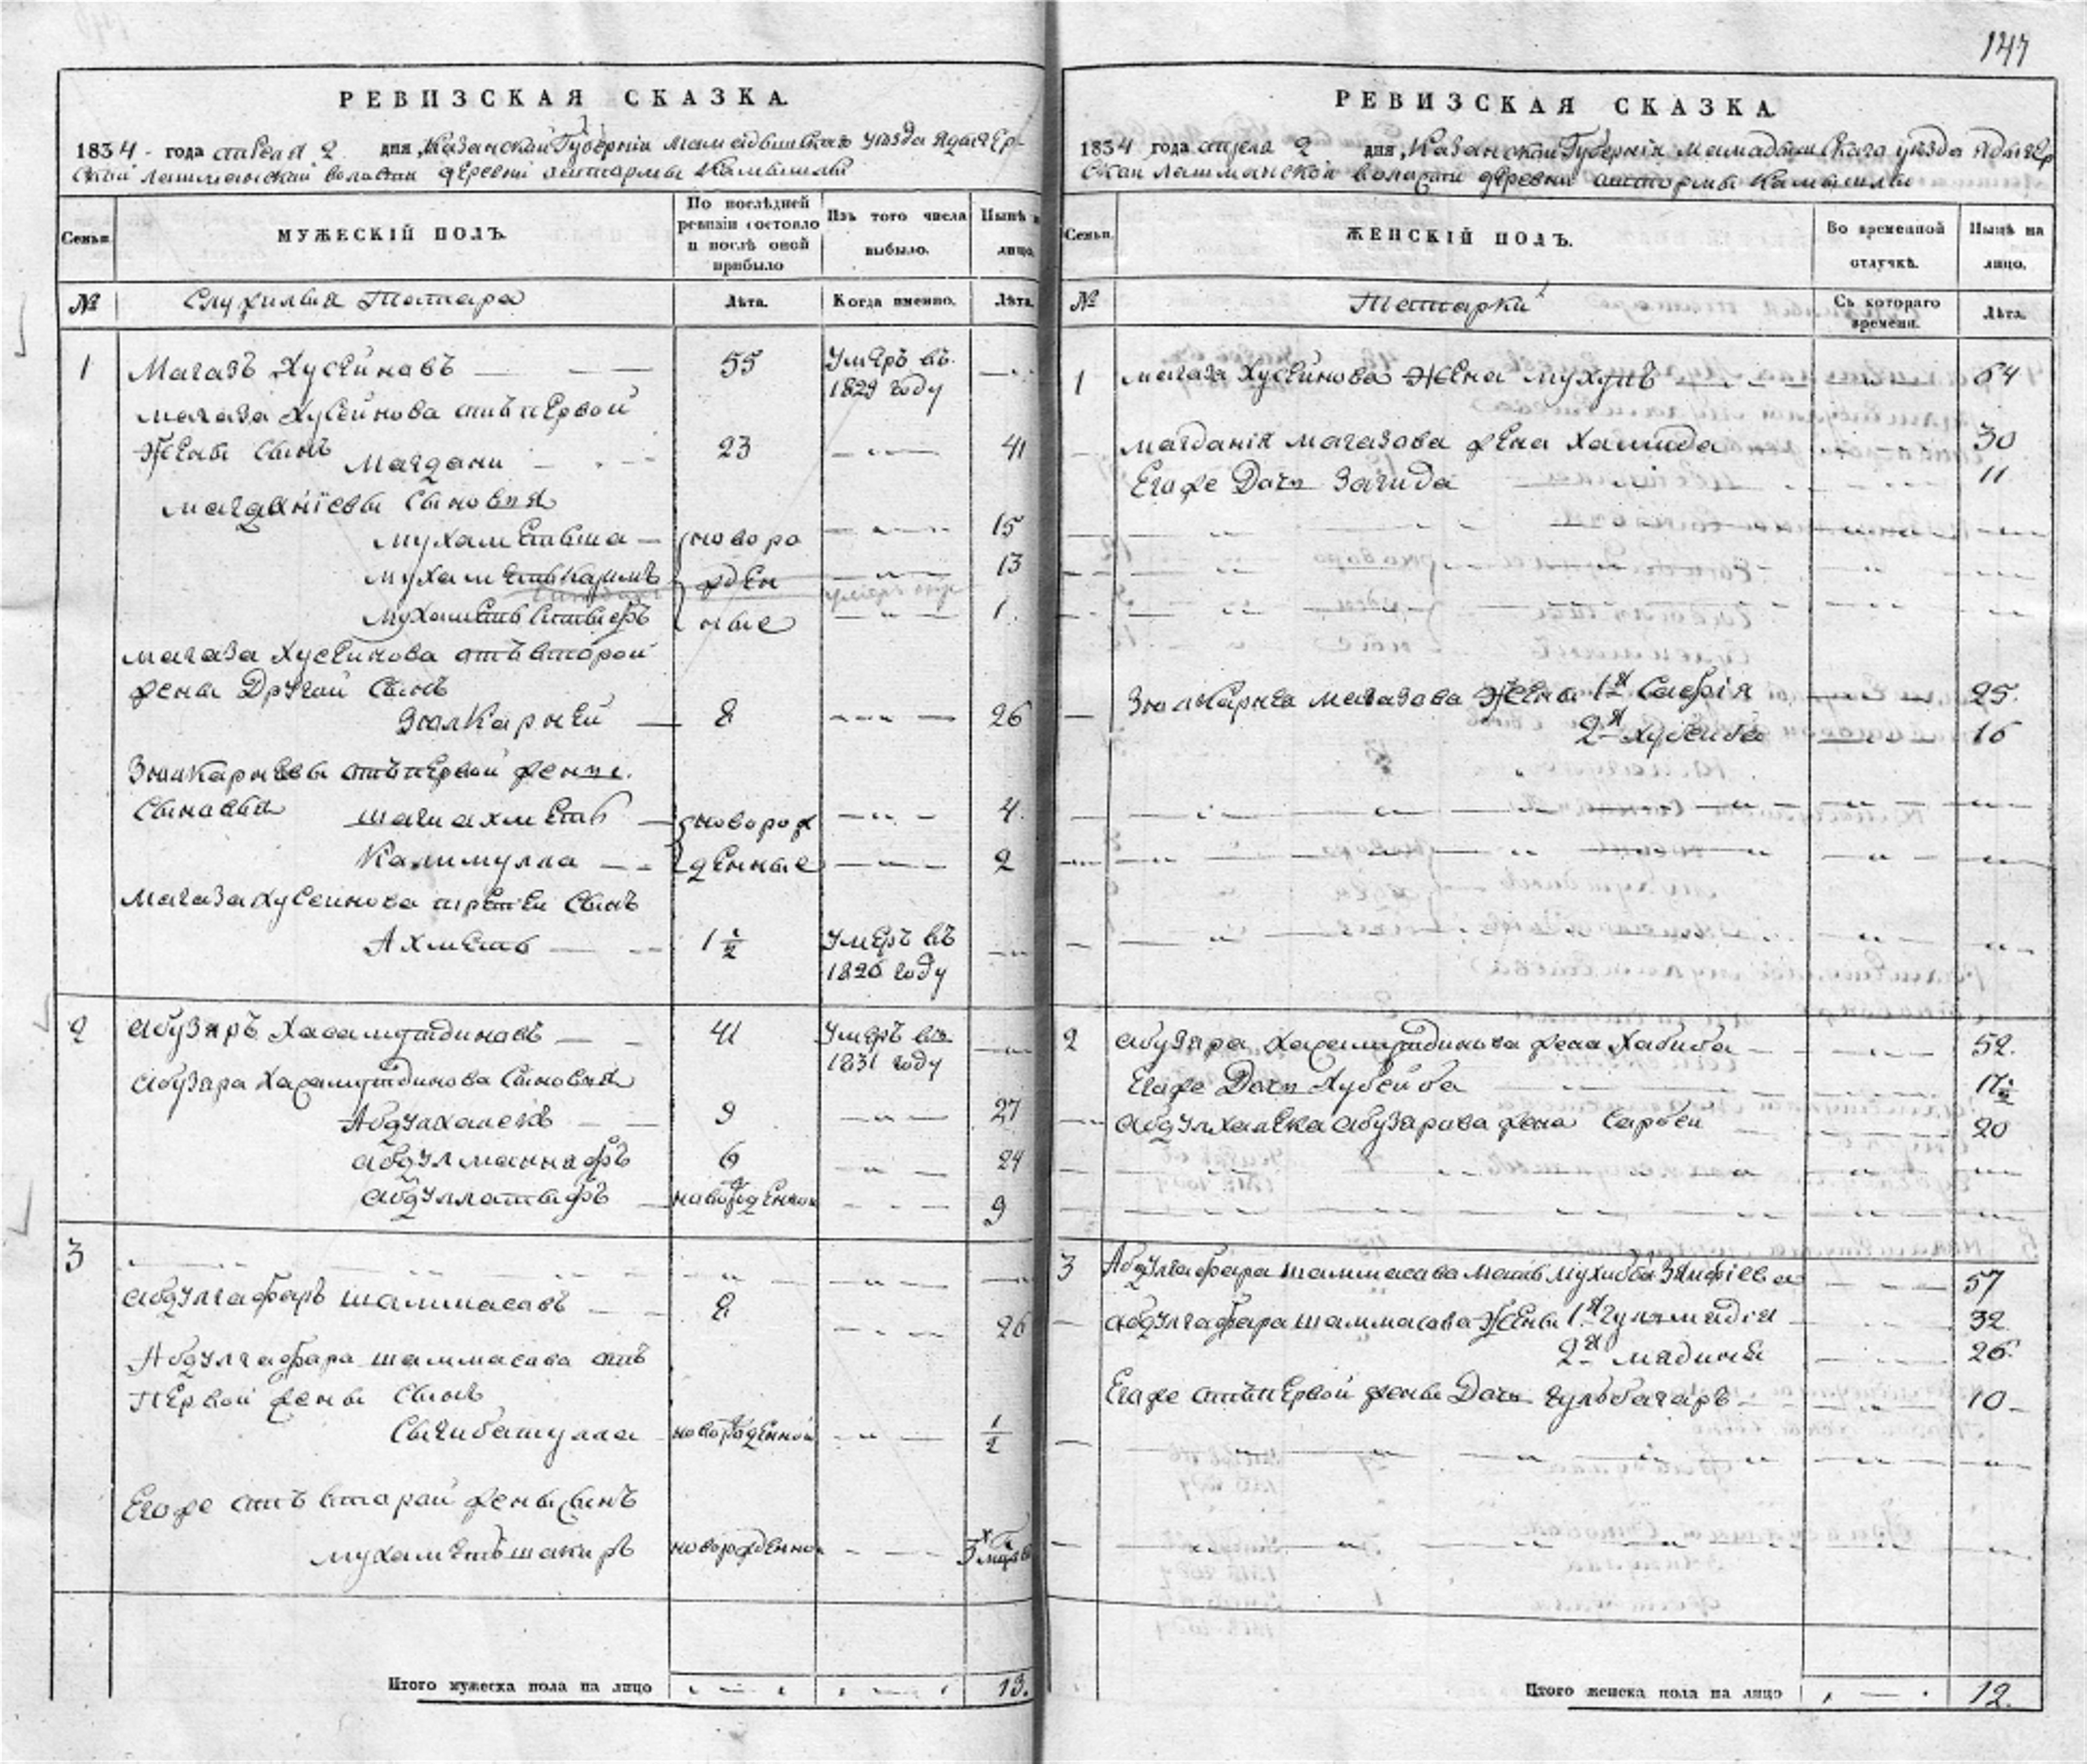 147
РЕВИЗСКАЯ СКАЗКА.
1834 года апреля 2 дня, Казанской Губернии Мамадышскаго уезда Ядыгер-
ской лашманской волости деревни Камышлы
Семьи.
МУЖЕСКІЙ ПОЛЪ.
По послѣдней ревизіи состояло и послѣ оной прибыло
Изъ того числа выбыло.
Нынѣ на лицо.
№
Служилыя Татара
Лѣта.
Когда именно.
Лѣта.
1 Магазъ Хусейновъ — 55 Умеръ въ —
1829 году
Магаза Хусейнова отъ первой
жены сынъ Магдани 23 — 41
Магданіевы сыновья
Мухаметьша — новоро — 15
Мухамет — жден — 13
Мухаметь ные — 1
Магаза Хусеинова отъ второй
жены Другой сынъ
Зюлкарней — 8 — 26
Зюлкарневы отъ первой жены.
Сыновья Шагиахметь — новорож — 4.
Калимулла — денные — 2
Магаза Хусеинова третей сынъ
Ахметь — 1 1/2 Умеръ въ —
1826 году
2 Абузяръ Хасамутдиновъ — 41 Умеръ въ —
1831 году
Абузяра Хасамутдинова сыновья
Абдулхалекъ — 9 — 27
Абдулманнафъ 6 — 24
Абдуллатыфъ — новорожденной — 9
3
Абдулгафаръ Шаммасовъ — 8 — 26
Абдулгафара Шаммасова отъ
первой жены сынъ
Сыгибатулла новорожденной — 1/2
Егоже отъ второй жены сынъ
Мухаметьшакиръ новорожденной —
Итого мужеска пола на лицо 13.
РЕВИЗСКАЯ СКАЗКА.
1834 года апреля 2 дня, Казанской Губернія Мамадышскаго уезда Ядыгер
ской лашманской волости деревни Камышлы
Семьи.
ЖЕНСКІЙ ПОЛЪ.
Во временной отлучкѣ.
Нынѣ на лицо.
№
Татарки
Съ котораго времени.
Лѣта.
1 Магаза Хусейнова жена — 64
Магданія Магазова жена Хамида 30
Егоже Дочь Загида 11
Зюлкарнея Магазова жены 1я Сафія — 25.
2я Хубейба — 16
2 Абузяра Хасамутдинова жена Хабиба — 52.
Егоже Дочь Хубейба 17 1/2
Абдулхалека Абузярова жена Сарбеи 20
3 Абдулгафара Шаммасова мать Мухибба — 57
Абдулгафара Шаммасова жены 1я — 32
2я Мадиня — 26.
Егоже отъ первой жены Дочь Гульбагаръ — 10
Итого женска пола на лицо 12.